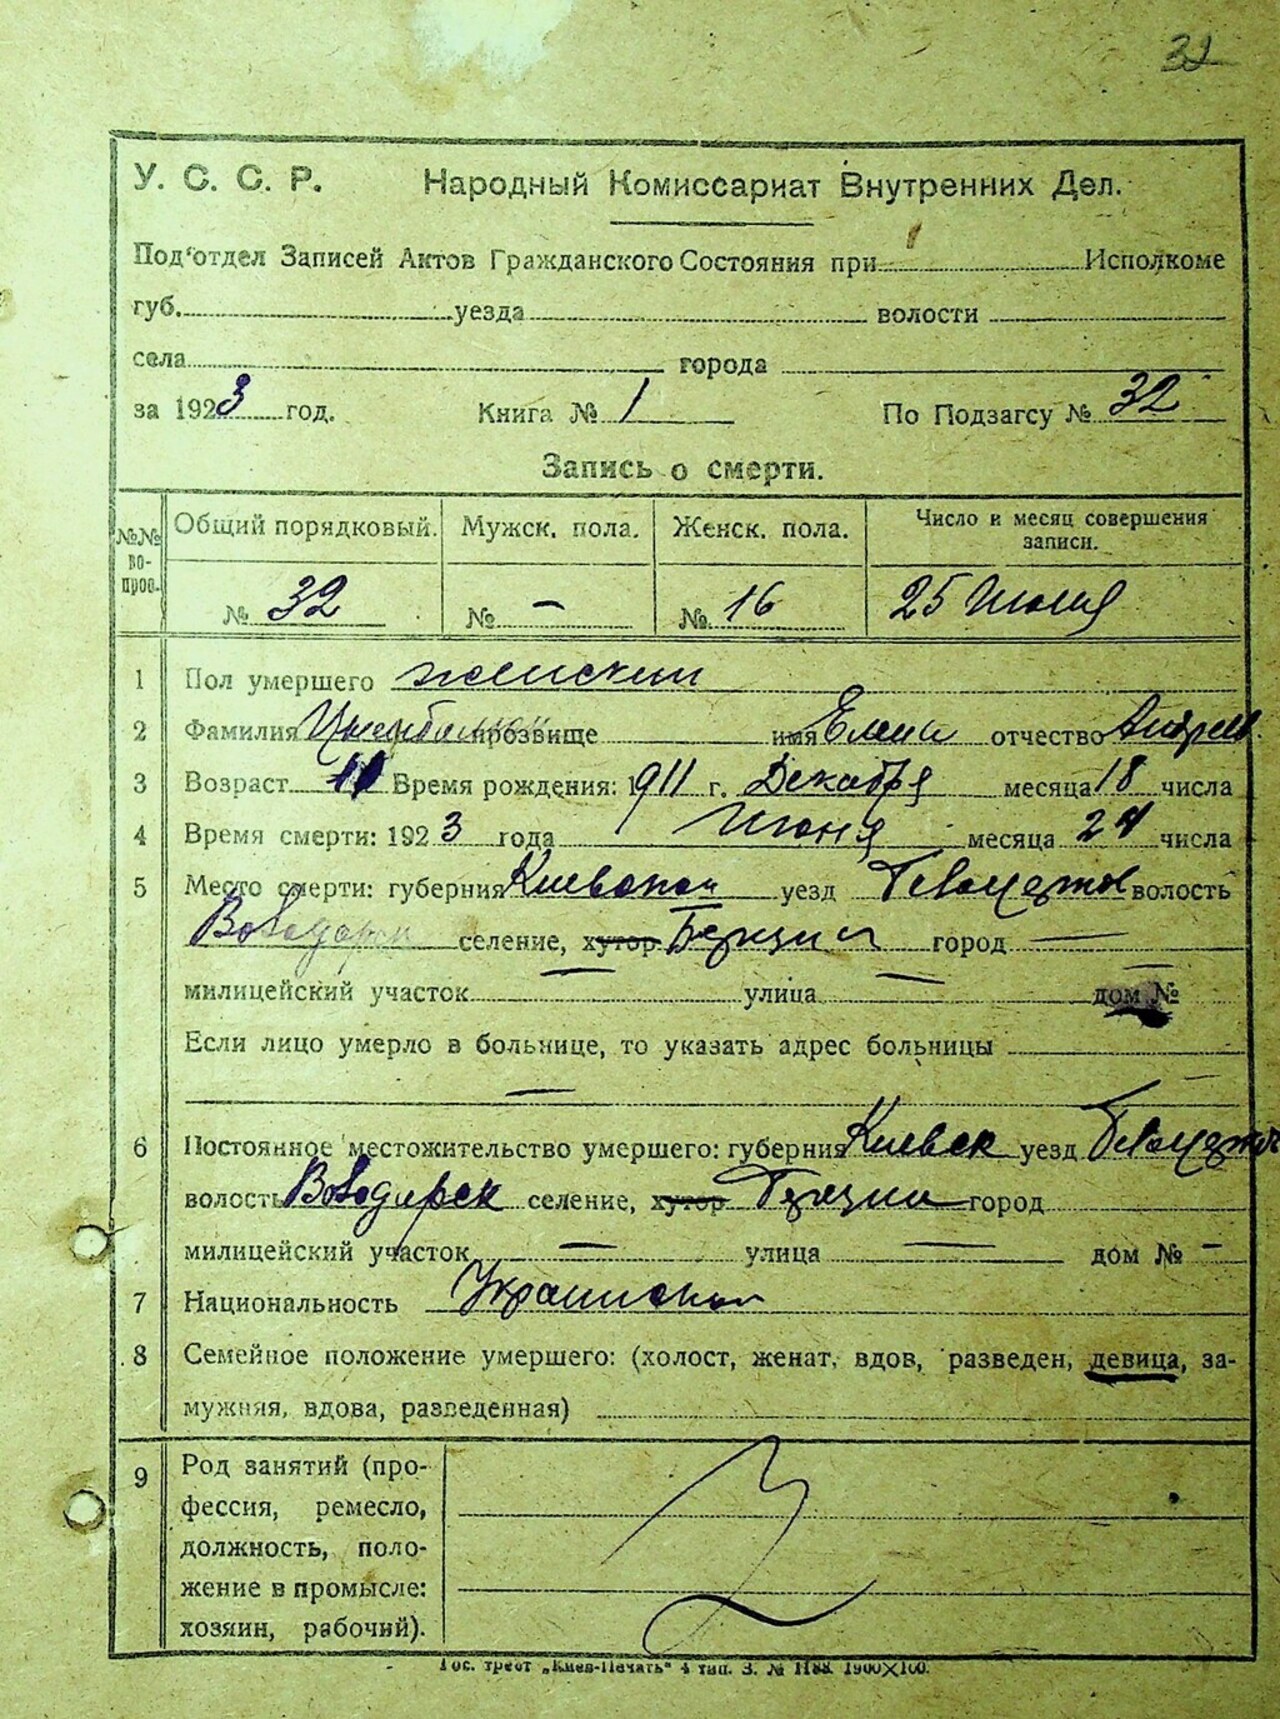 32
У. С. С. Р. Народный Комиссариат Внутренних Дел.
Под'отдел Записей Актов Гражданского Состояния при Исполкоме
губ. уезда волости
села города
за 1923 год. Книга № 1 По Подзагсу № 32
Запись о смерти.
№№ во- прос. Общий порядковый. Мужск. пола. Женск. пола. Число и месяц совершения записи.
№ 32 № — № 16 25 Июня
1 Пол умершего женский
2 Фамилия прозвище имя Елена отчество Андреев.
3 Возраст 11 Время рождения: 1911 г. Декабря месяца 18 числа
4 Время смерти: 1923 года Июня месяца 24 числа
5 Место смерти: губерния Киевская уезд волость
селение, хутор город —
милицейский участок — улица — дом №
Если лицо умерло в больнице, то указать адрес больницы —
—
6 Постоянное местожительство умершего: губерния Киевск уезд
волость селение, хутор город
милицейский участок — улица — дом № —
7 Национальность Украинская
8 Семейное положение умершего: (холост, женат, вдов, разведен, девица, за-
мужняя, вдова, разведенная)
9 Род занятий (про-
фессия, ремесло,
должность, поло-
жение в промысле:
хозяин, рабочий).
Гос. трест „Киев-Печать" 4 тип. З. № 1188. 1900×100.